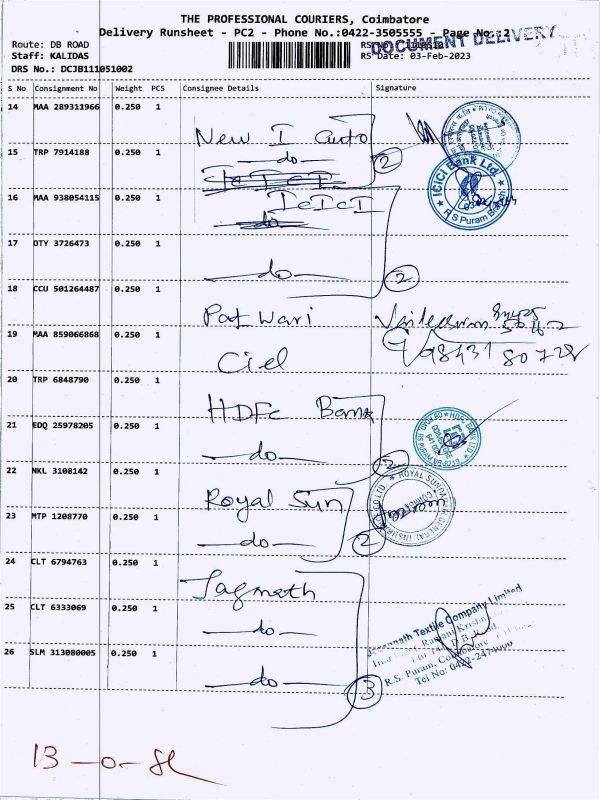 THE PROFESSIONAL COURIERS, Coimbatore
Delivery Runsheet - PC2 - Phone No.:0422-3505555 - Page No.:2
DOCUMENT DELIVERY
Route: DB ROAD
Staff: KALIDAS
RS Date: 03-Feb-2023
DRS No.: DCJB111051002
S No Consignment No Weight PCS Consignee Details Signature
14 MAA 289311966 0.250 1
New I Auto
15 TRP 7914188 0.250 1
do
2
ICICI Bank Ltd
R S Puram Branch
16 MAA 938054115 0.250 1
IcIcI
do
17 OTY 3726473 0.250 1
do
2
18 CCU 501264487 0.250 1
Patwari
19 MAA 859066868 0.250 1
Ciel
98431 80728
20 TRP 6848790 0.250 1
HDFC Bank
21 EDQ 25978205 0.250 1
do
2
22 NKL 3108142 0.250 1
Royal Sun
ROYAL SUNDARAM GENERAL INSURANCE CO LTD
23 MTP 1208770 0.250 1
do
2
24 CLT 6794763 0.250 1
Jagnath
25 CLT 6333069 0.250 1
do
Jagannath Textile Company Limited
26 SLM 313080005 0.250 1
do
3
R.S. Puram, Coimbatore
Tel No: 0422-2474000
13-0-SL